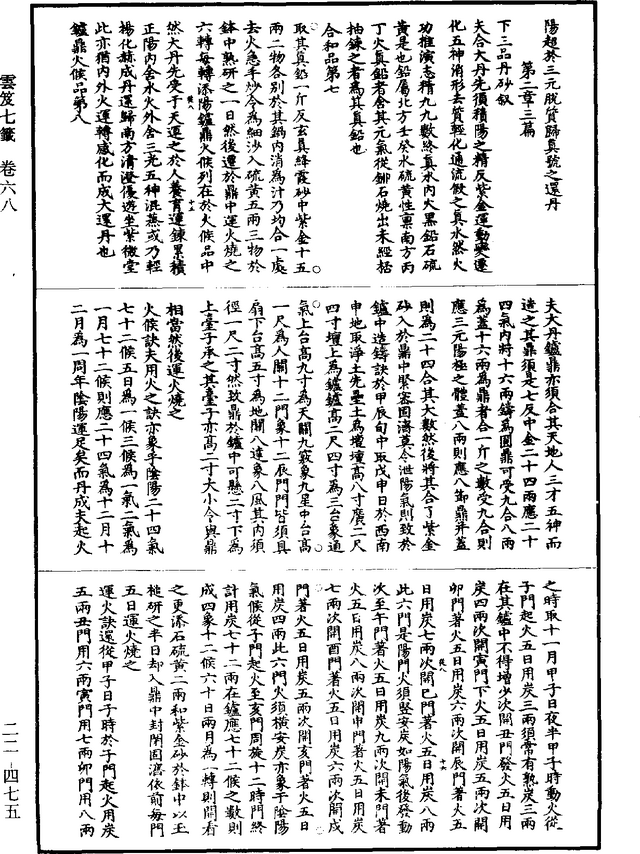 陽超於三元脫質歸真號之還丹
第二章三篇
下三品丹砂叙
夫合大丹先須積陽之精反紫金運動變還
化五神消形去質輕化通流假之真水然火
功推演志精九九數終真水內火黑鉛石硫
黃是也鉛屬北方壬癸水硫黃性稟南方丙
丁火真鉛者含其元氣從鉛石燒出未經栝
抽鍊之者為其真鉛也
合和品第七
取其真鉛一斤反玄真絳霞砂中紫金十五
兩二物各別於其鍋內消為汁乃均合一處
去火急手炒令為細沙入硫黃五兩三物於
鉢中熟研之一日然後還於鼎中運火燒之
六轉每轉添陽鑪鼎火候列在於火候品中
然大丹先受于天運之於人養育運鍊累積
正陽內舍水火外含三光五神混蒸或乃輕
楊化赫成丹還歸南方清澄優遊坐紫微堂
此亦猶內外火運轉感化而成大還丹也
鑪鼎火候品第八
夫大丹鑪鼎亦須合其天地人三才五神而
造之其鼎須是七反中金二十四兩應二十
四氣內將十六兩鑄為圓鼎可受九合八兩
為蓋十六兩為鼎者合一斤之數受九合則
應三元陽極之體蓋八兩則應八節鼎并蓋
則為二十四合其大數然後將其合了紫金
砂入於鼎中緊密固濟莫令泄陽氣則致於
鑪中造鑄訣於甲辰旬中取戊申日於西南
申地取淨土先壘土為壇壇高八寸廣二尺
四寸壇上為鑪鑪高二尺四寸為三台象通
氣上台高九寸為天關九竅象九星中台高
一尺為人關十二門象十二辰門門皆須具
扇下台高五寸為地關八達象八風其內須
徑一尺二寸然致鼎於鑪中可懸二寸下為
土臺子承之其臺子亦高二寸大小令與鼎
相當然後運火燒之
火候訣夫用火之訣亦象乎陰陽二十四氣
七十二候五日為一候三候為一氣二氣為
一月七十二候則應二十四氣為十二月十
二月為一周年陰陽運足矣而丹成夫起火
之時取十一月甲子日夜半甲子時動火從
子門起火五日用炭三兩須常有熟炭三兩
在其鑪中不得增少次開丑門發火五日用
炭四兩次開寅門下火五日用炭五兩次開
卯門著火五日用炭六兩次開辰門著火五
日用炭七兩次開巳門著火五日用炭八兩
此六門是陽門火須緊安炭如陽氣後發動
次至午門著火五日用炭九兩次開未門著
火五日用炭八兩次開申門著火五日用炭
七兩次開酉門著火五日用炭六兩次開戌
門著火五日用炭五兩次開亥門著火五日
用炭四兩此六門火須橫安炭亦象乎陰陽
氣候從子門起火至亥門周旋十二時門終
計用炭七十二兩在鑪應七十二候之數則
成四象十二候六十日兩月為一轉則開看
之更添石硫黃二兩和紫金砂於鉢中以玉
槌研之半日却入鼎中封閉固濟依前每門
五日運火燒之
運火訣還從甲子日子時於子門起火用炭
五兩丑門用六兩寅門用七兩卯門用八兩
雲笈七籤　卷六八
二二－四七五